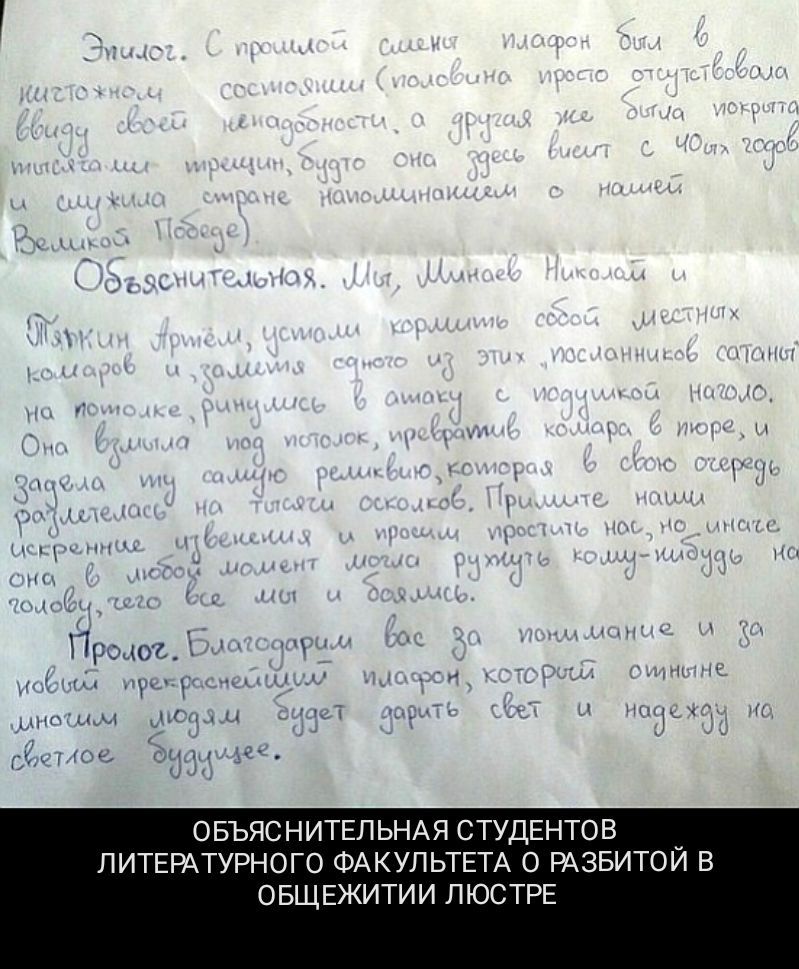 Эпилог. С прошлой смены плафон был в
ничтожном состоянии (половина просто отсутствовала
ввиду своей ненадобности, а другая же была покрыта
тысячами трещин, будто она здесь висит с 40ых годов
и служила стране напоминанием о нашей
Великой Победе).
Объяснительная. Мы, Минаев Николай и
Тяпкин Артём, устали кормить собой местных
комаров и, заметя одного из этих "посланников сатаны"
на потолке, ринулись в атаку с подушкой наголо.
Она взмыла под потолок, превратив комара в пюре, и
задела ту самую реликвию, которая в свою очередь
разлетелась на тысячи осколков. Примите наши
искренние извенения и просим простить нас, но иначе
она в любой момент могла ружуть кому-нибудь на
голову, чего все мы и боялись.
Пролог. Благодарим вас за понимание и за
новый прекраснейший плафон, который отныне
многим людям будет дарить свет и надежду на
светлое будущее.
ОБЪЯСНИТЕЛЬНАЯ СТУДЕНТОВ
ЛИТЕРАТУРНОГО ФАКУЛЬТЕТА О РАЗБИТОЙ В
ОБЩЕЖИТИИ ЛЮСТРЕ